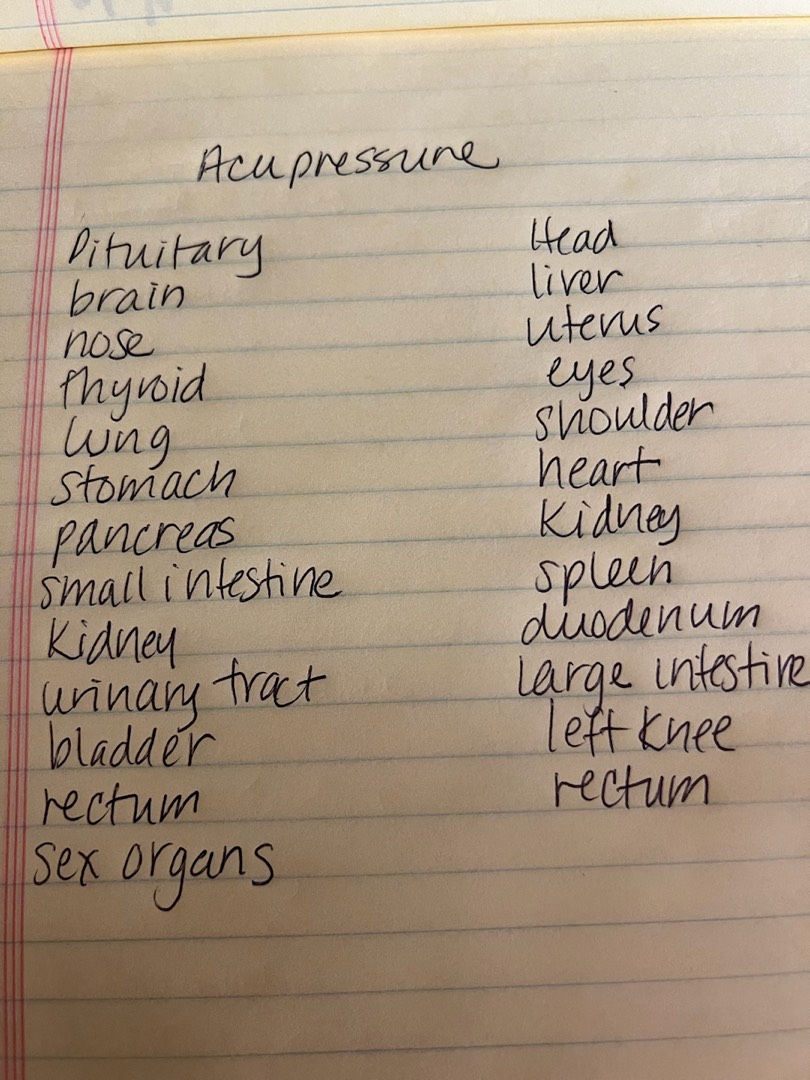 Acupressure
Pituitary
brain
nose
thyroid
lung
stomach
pancreas
small intestine
Kidney
urinary tract
bladder
rectum
sex organs
Head
liver
uterus
eyes
shoulder
heart
Kidney
spleen
duodenum
large intestine
left knee
rectum